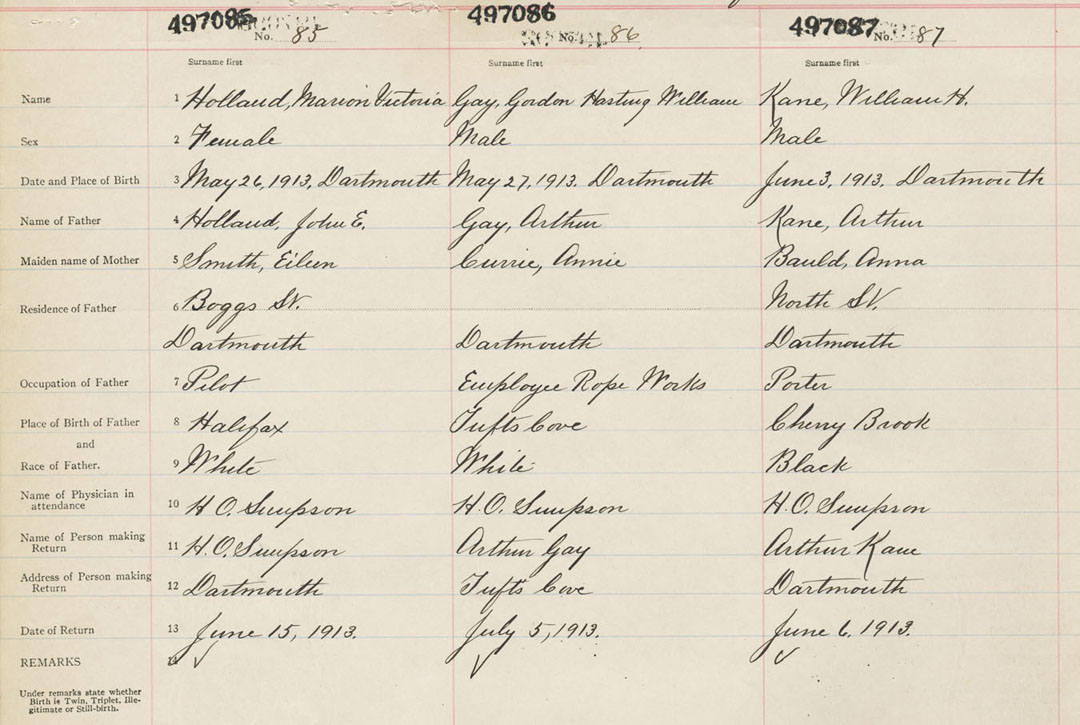 497085 No. 85 497086 No. 86 497087 No. 87
Surname first Surname first Surname first
Name 1 Holland, Marion Victoria Gay, Gordon Harting William Kane, William H.
Sex 2 Female Male Male
Date and Place of Birth 3 May 26, 1913, Dartmouth May 27, 1913. Dartmouth June 3, 1913. Dartmouth
Name of Father 4 Holland, John E. Gay, Arthur Kane, Arthur
Maiden name of Mother 5 Smith, Eileen Currie, Annie Bauld, Anna
Residence of Father 6 Boggs St. North St.
Dartmouth Dartmouth Dartmouth
Occupation of Father 7 Pilot Employee Rope Works Porter
Place of Birth of Father 8 Halifax Tufts Cove Cherry Brook
and
Race of Father. 9 White White Black
Name of Physician in attendance 10 H. O. Simpson H. O. Simpson H. O. Simpson
Name of Person making Return 11 H. O. Simpson Arthur Gay Arthur Kane
Address of Person making Return 12 Dartmouth Tufts Cove Dartmouth
Date of Return 13 June 15, 1913. July 5, 1913. June 6, 1913.
REMARKS 14
Under remarks state whether
Birth is Twin, Triplet, Ille-
gitimate or Still-birth.